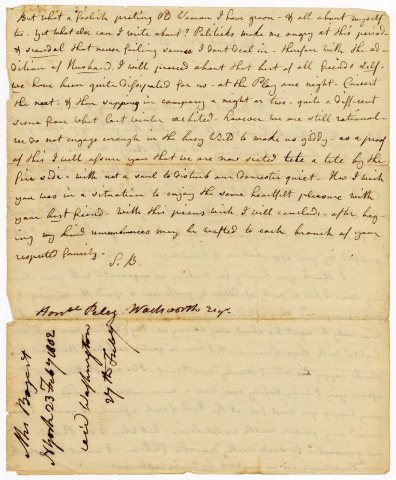 But what a foolish prating Old Woman I have grown - & all about myself
too - yet what else can I write about? Politicks make me angry at this period
& scandal that never failing source I dont deal in - therefore with the ad-
dition of Husband. I will proceed about that best of all friends self -
we have been quite dissipated for us - at the Play one night - Concert
the next - & then supping in company a night or two - quite a different
scene from what last winter exhibited - however we are still rational -
we do not engage enough in the busy World to make us giddy - as a proof
of this I will assure you that we are now seated tete a tete by the
fire side - with not a soul to disturb our domestic quiet - How I wish
you was in a situation to enjoy the same heartfelt pleasure with
your best friend - with this pious wish I will conclude - after beg-
ing my kind remembrances may be wafted to each branch of your
respected family -
S. B.
Honble Peleg Wadsworth Esqr.
Mrs
N York 23 Feby 1802
recd Washington
27th Feby